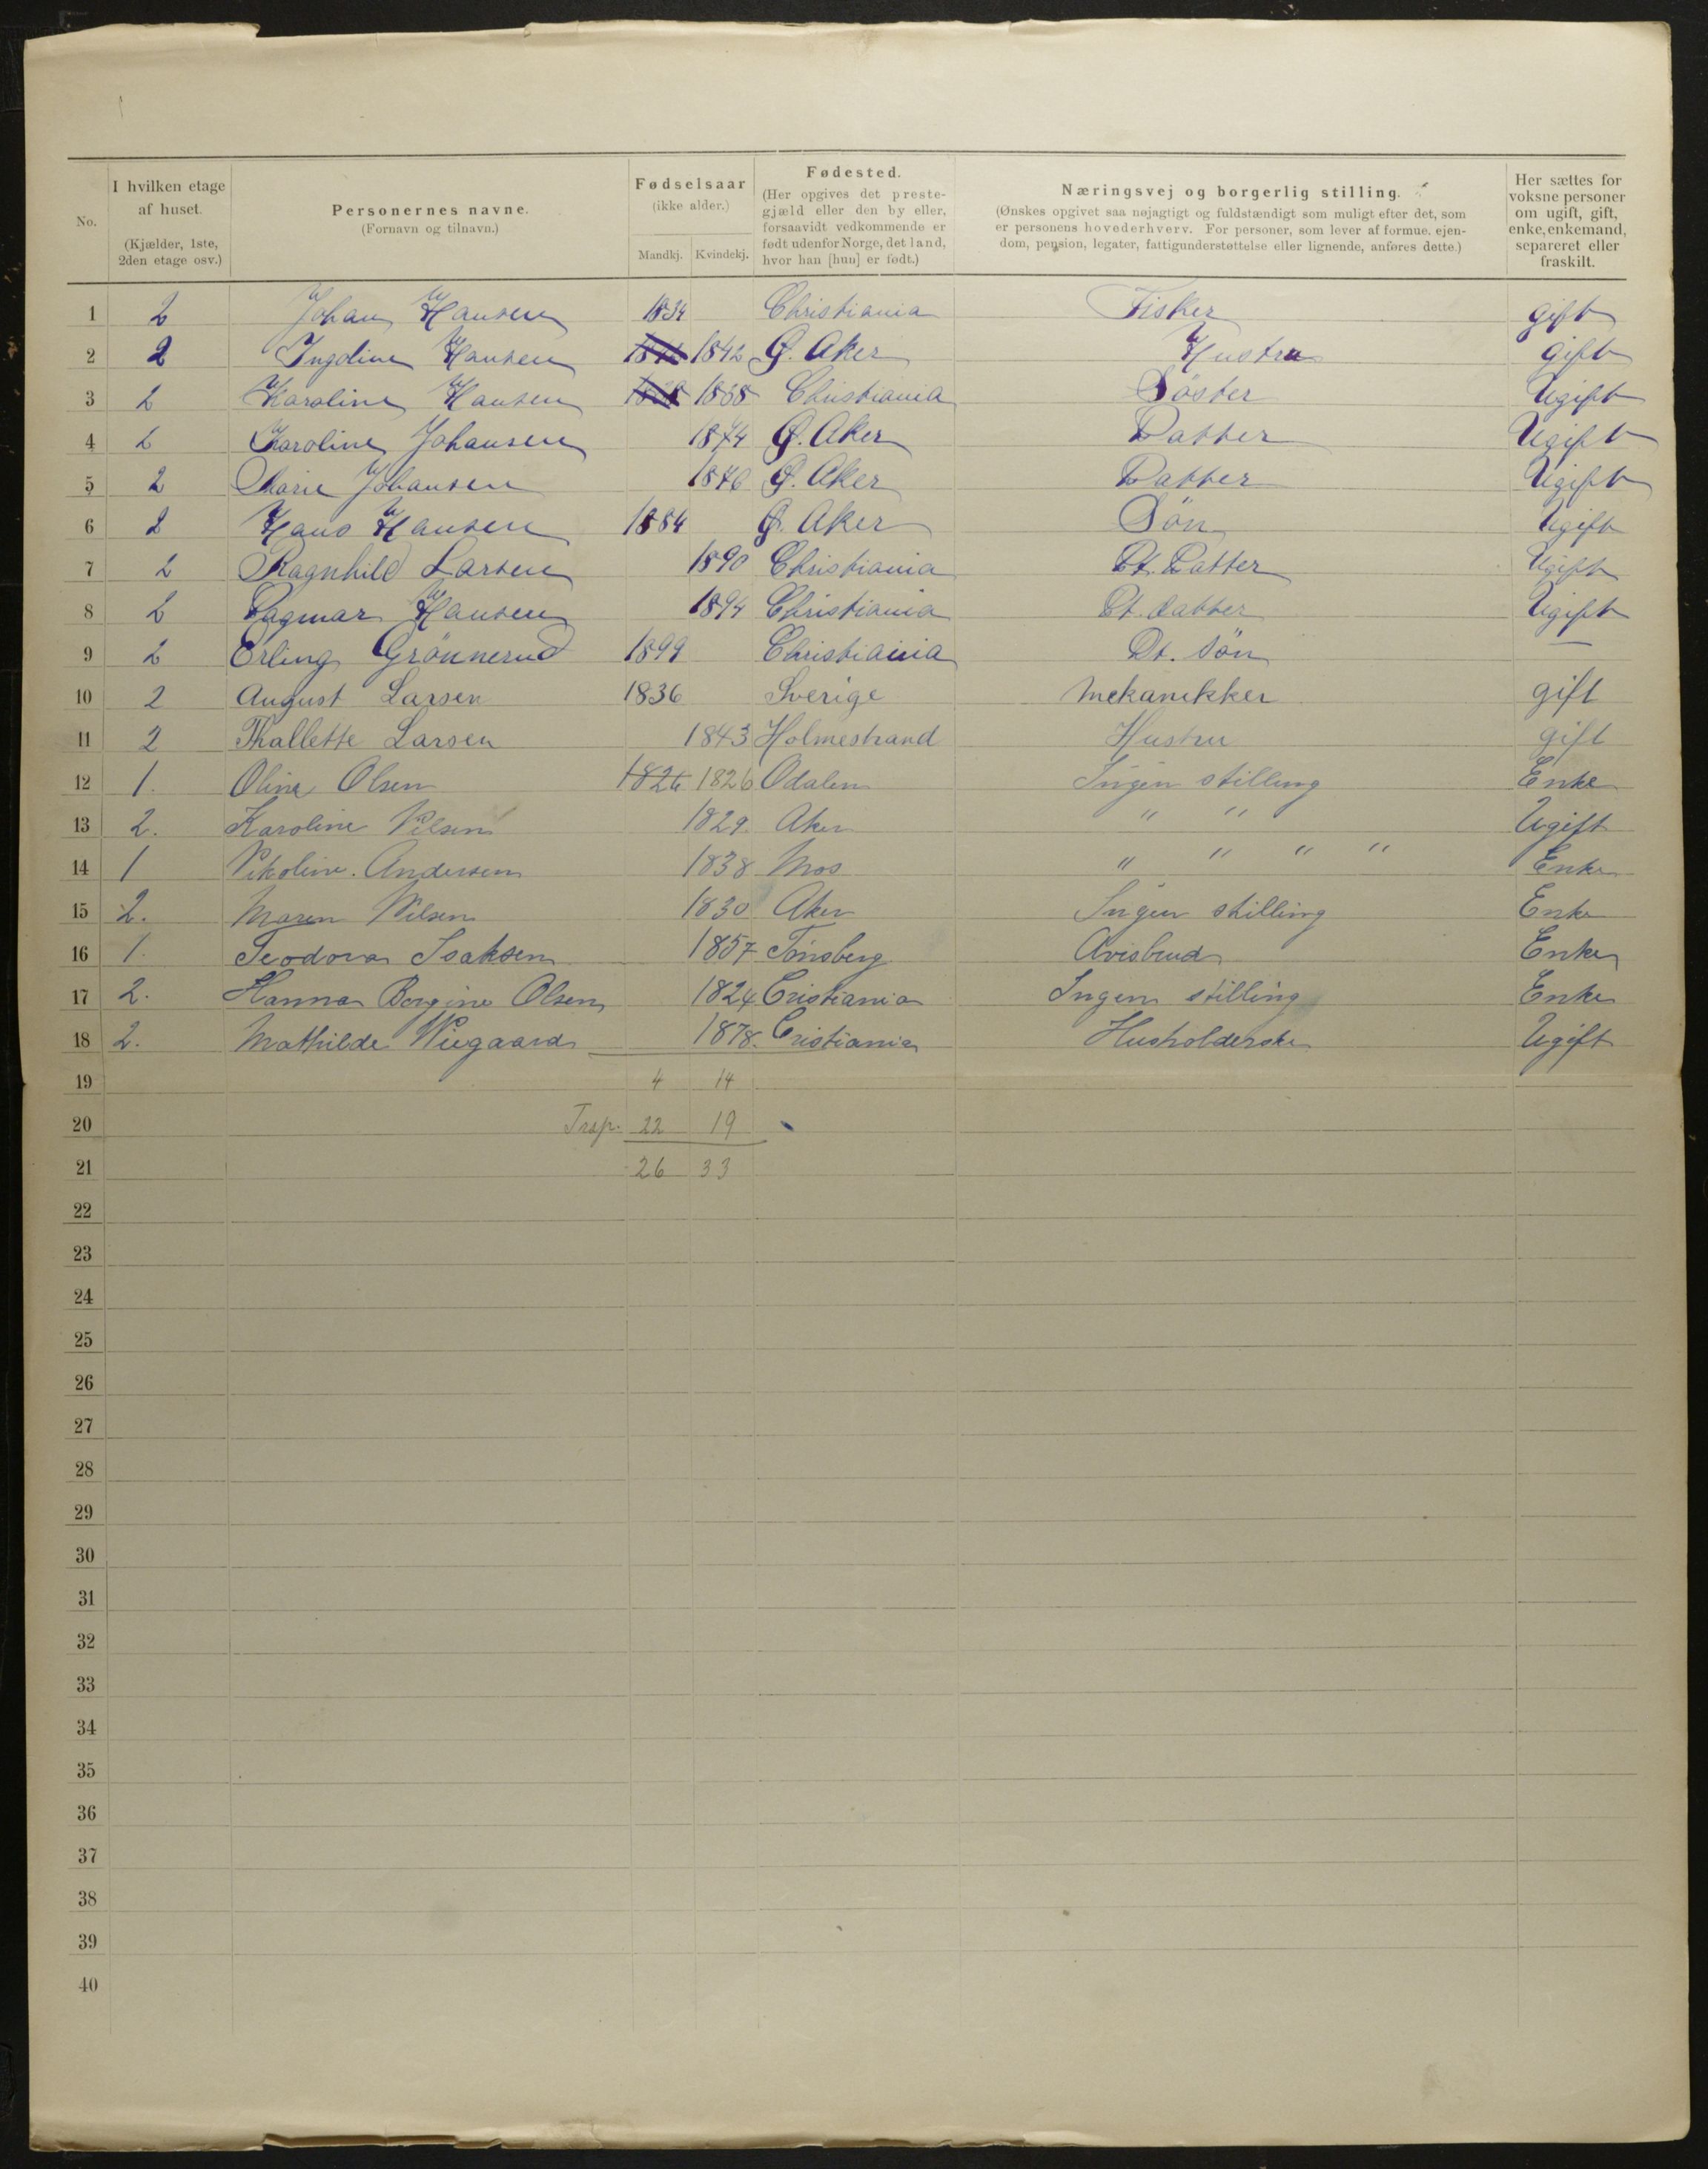 No.
I hvilken etage af huset.
(Kjælder, 1ste, 2den etage osv.)
Personernes navne.
(Fornavn og tilnavn.)
Fødselsaar
(ikke alder.)
Mandkj. Kvindekj.
Fødested.
(Her opgives det prestegjæld eller den by eller, forsaavidt vedkommende er født udenfor Norge, det land, hvor han [hun] er født.)
Næringsvej og borgerlig stilling.
(Ønskes opgivet saa nøjagtigt og fuldstændigt som muligt efter det, som er personens hovederhverv. For personer, som lever af formue, ejendom, pension, legater, fattigunderstøttelse eller lignende, anføres dette.)
Her sættes for voksne personer om ugift, gift, enke, enkemand, separeret eller fraskilt.
1 2 Johan Hansen 1834 Christiania Fisker gift
2 2 Ingoline Hansen 1842 Ø. Aker Hustru gift
3 2 Karoline Hansen 1838 Christiania Söster Ugift
4 2 Karoline Johansen 1874 Ø. Aker Datter Ugift
5 2 Marie Johansen 1876 Ø. Aker Datter Ugift
6 2 Hans Hansen 1884 Ø. Aker Sön Ugift
7 2 Ragnhild Larsen 1890 Christiania Dt. Datter Ugift
8 2 Dagmar Hansen 1894 Christiania Dt. datter Ugift
9 2 Erling Grönnerud 1899 Christiania Dt. sön —
10 2 August Larsen 1836 Sverige Mekanikker gift
11 2 Thallette Larsen 1843 Holmestrand Hustru gift
12 1. Oline Olsen 1826 1826 Odalen Ingen stilling Enke
13 2. Karoline Nilsen 1829. Aker " " Ugift
14 1 Nikoline. Andersen 1838 Mos " " " " Enke
15 2. Maren Nilsen 1830 Aker Ingen stilling Enke
16 1. Teodora Isaksen 1857 Tönsberg Avisbud Enke
17 2. Hanna Borgine Olsen 1824 Cristiania Ingen stilling Enke
18 2. Mathilde Wiegaard 1878. Cristiania Husholderske Ugift
19 4 14
20 Trsp. 22 19
21 26 33
22
23
24
25
26
27
28
29
30
31
32
33
34
35
36
37
38
39
40